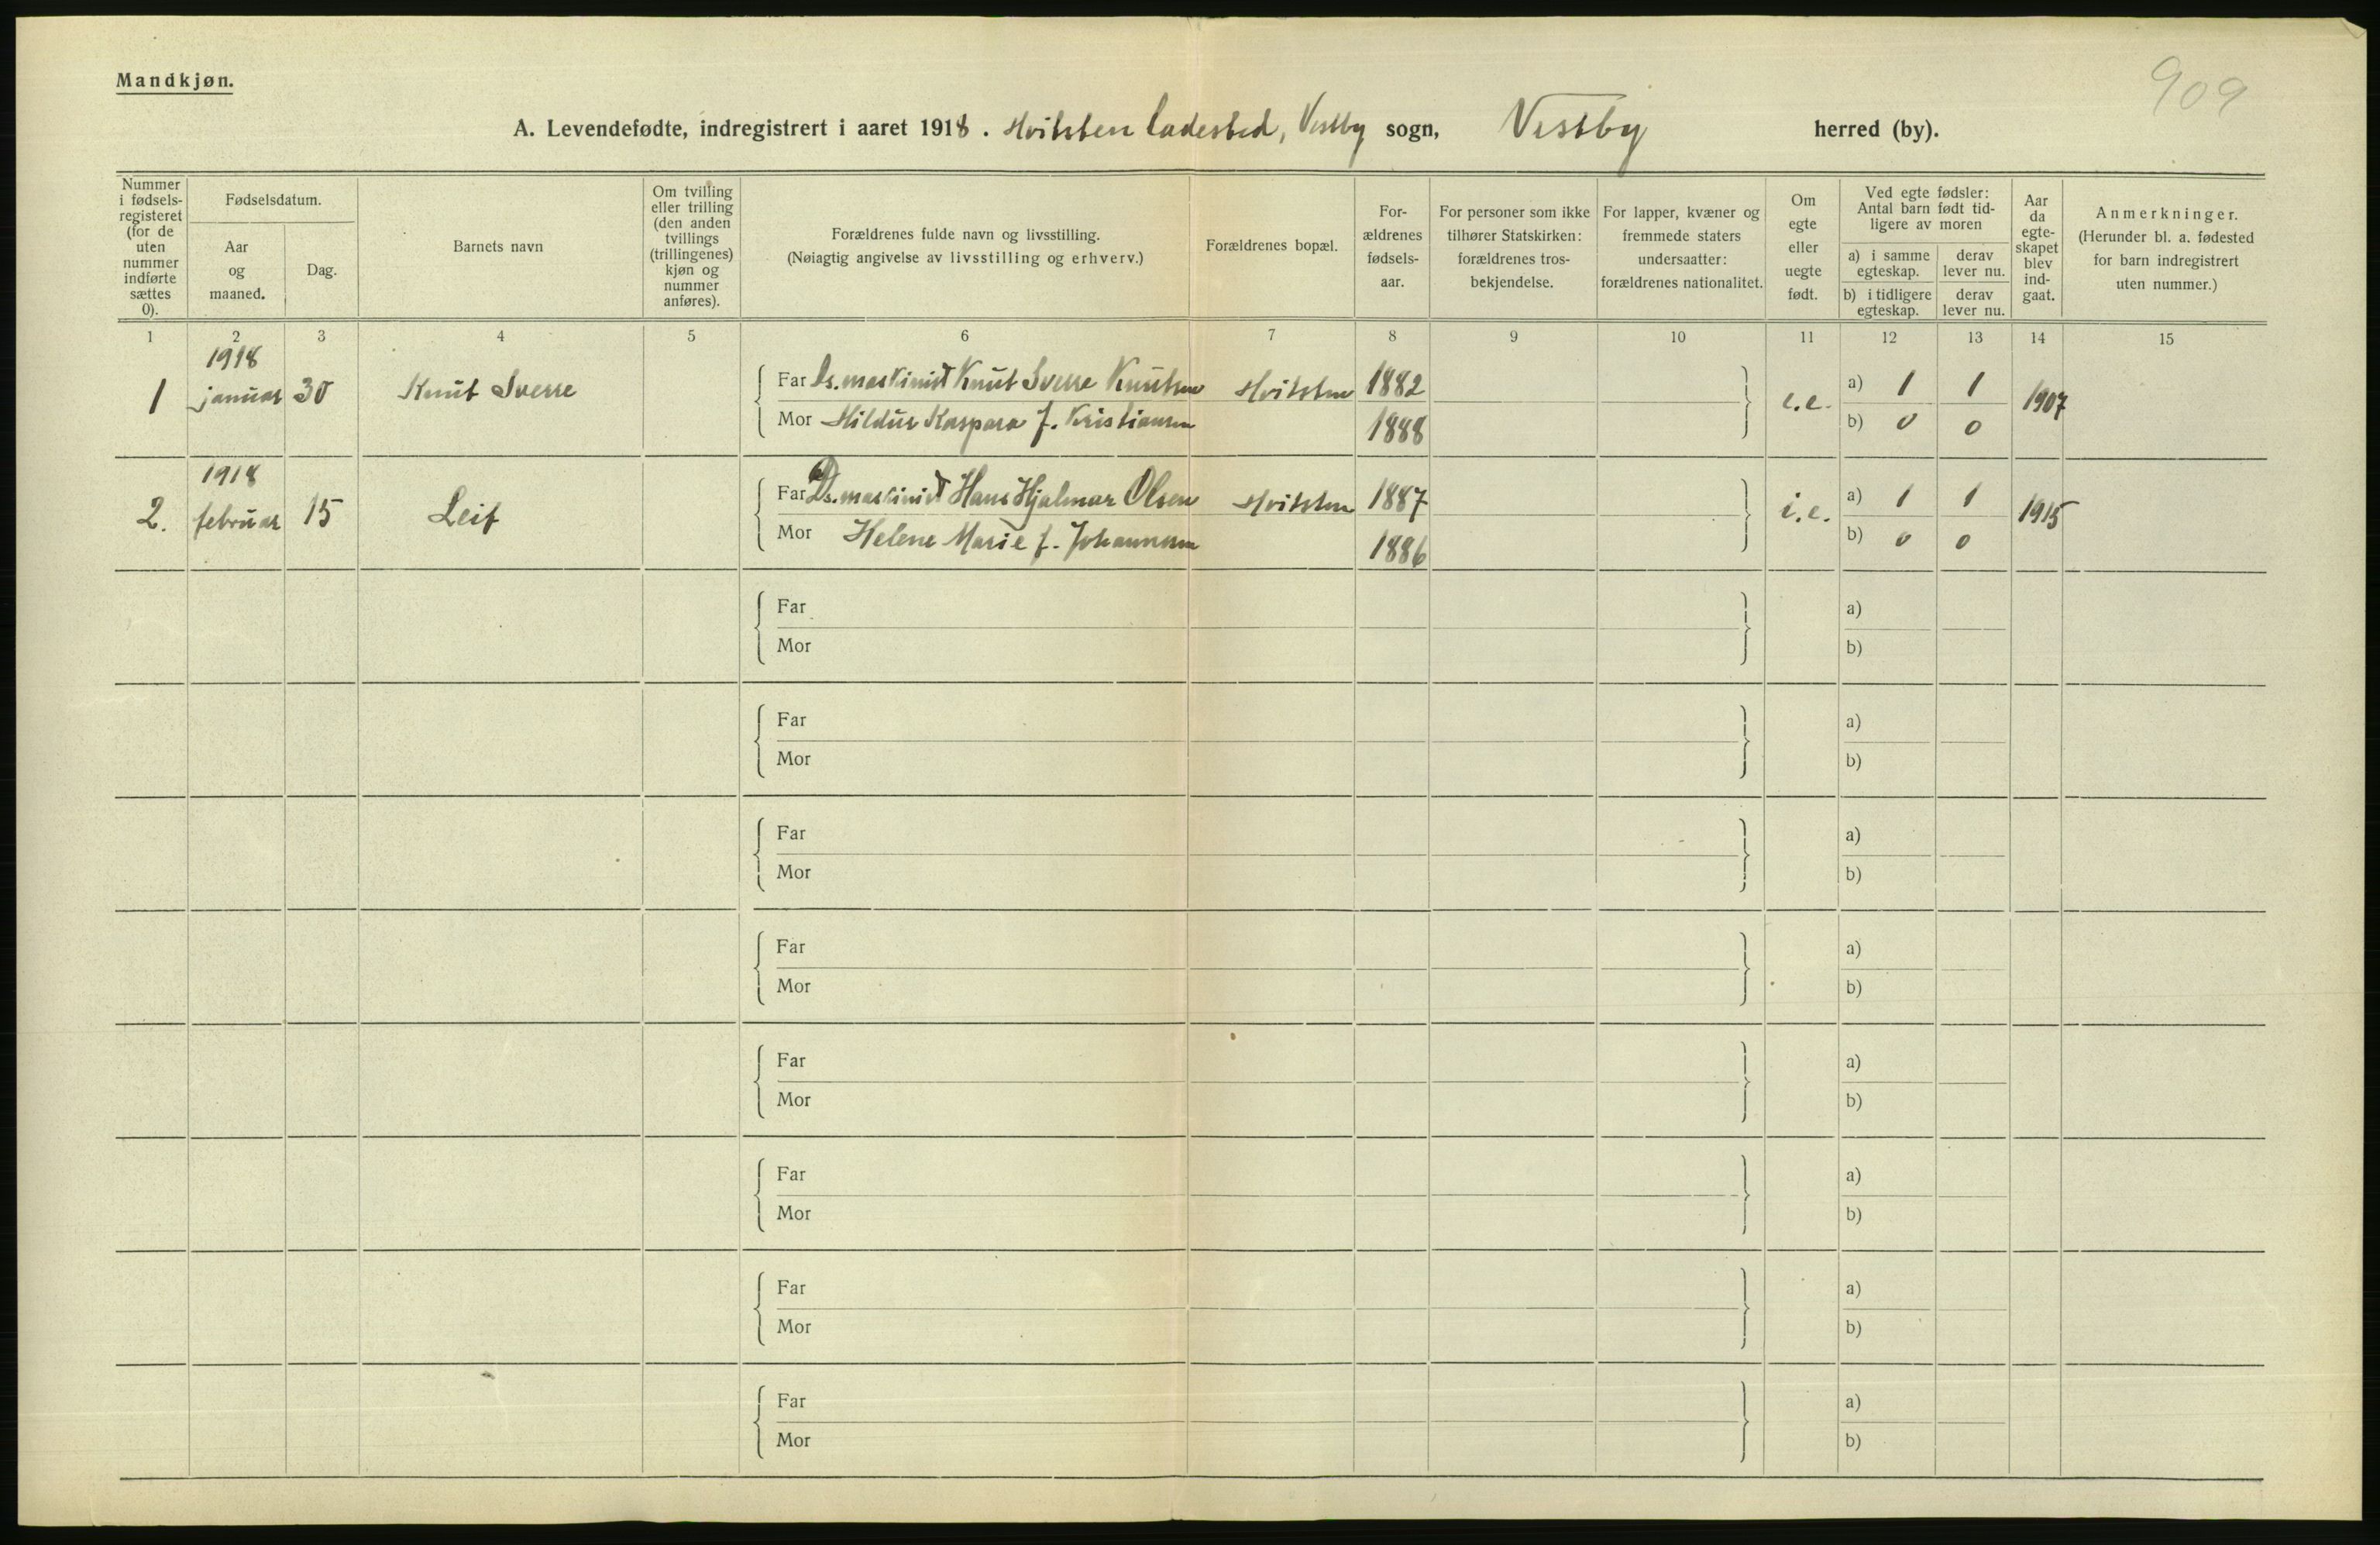 Mandkjøn.
909
A. Levendefødte, indregistrert i aaret 1918. Hvitsten ladested, Vestby sogn, Vestby herred (by).
Nummer i fødselsregisteret (for de uten nummer indførte sættes 0).
Fødselsdatum.
Aar og maaned.
Dag.
Barnets navn
Om tvilling eller trilling (den anden tvillings (trillingenes) kjøn og nummer anføres).
Forældrenes fulde navn og livsstilling.
(Nøiagtig angivelse av livsstilling og erhverv.)
Forældrenes bopæl.
Forældrenes fødselsaar.
For personer som ikke tilhører Statskirken: forældrenes trosbekjendelse.
For lapper, kvæner og fremmede staters undersaatter: forældrenes nationalitet.
Om egte eller uegte født.
Ved egte fødsler: Antal barn født tidligere av moren
a) i samme egteskap.
derav lever nu.
b) i tidligere egteskap.
derav lever nu.
Aar da egteskapet blev indgaat.
Anmerkninger.
(Herunder bl. a. fødested for barn indregistrert uten nummer.)
1 2 3 4 5 6 7 8 9 10 11 12 13 14 15
1 1918 januar 30 Knut Sverre Far Ds. maskinist Knut Sverre Knutsen Hvitsten 1882 e.e. a) 1 1 1907
Mor Hildur Kaspara f. Kristiansen 1888 b) 0 0
2. 1918 februar 15 Leif Far Ds. maskinist Hans Hjalmar Olsen Hvitsten 1887 i.e. a) 1 1 1915
Mor Helene Marie f. Johannesen 1886 b) 0 0
Far a)
Mor b)
Far a)
Mor b)
Far a)
Mor b)
Far a)
Mor b)
Far a)
Mor b)
Far a)
Mor b)
Far a)
Mor b)
Far a)
Mor b)